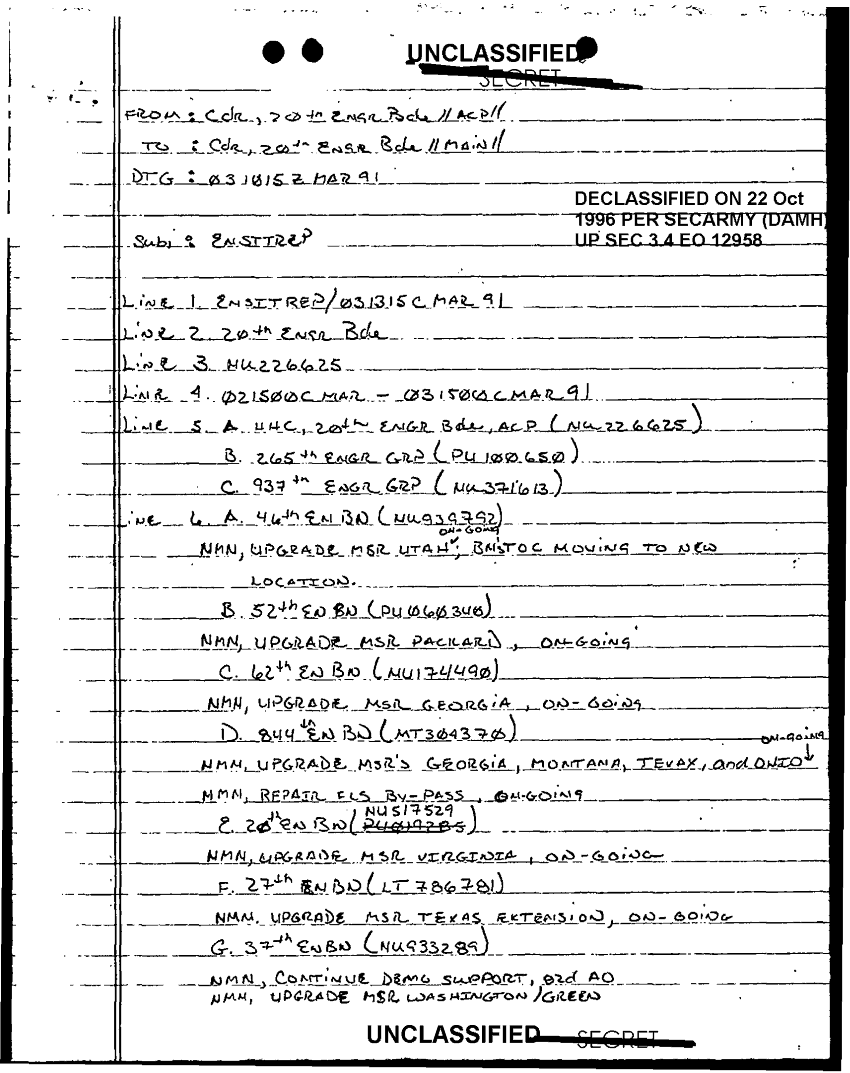 UNCLASSIFIED
SECRET
FROM : Cdr, 20th ENGR Bde //ACP//
TO : Cdr, 20th ENGR Bde //MAIN//
DTG : 031015Z MAR 91
DECLASSIFIED ON 22 Oct
1996 PER SECARMY (DAMH)
UP SEC 3.4 EO 12958
Subj : ENSITREP
LINE 1. ENSITREP/031315C MAR 91
LINE 2. 20th ENGR Bde
LINE 3. NU226625
LINE 4. 021500C MAR - 031500C MAR 91
LINE 5. A. HHC, 20th ENGR Bde, ACP (NU226625)
B. 265th ENGR GRP (PU100650)
C. 937th ENGR GRP (NU371613)
LINE 6. A. 46th EN BN (NU939792)
ON-GOING
NMN, UPGRADE MSR UTAH; BNSTOC MOVING TO NEW
LOCATION.
B. 52th EN BN (PU060340)
NMN, UPGRADE MSR PACKARD, ON-GOING
C. 62th EN BN (NU174490)
NMN, UPGRADE MSR GEORGIA, ON-GOING
D. 844th EN BN (MT304370)
ON-GOING
NMN, UPGRADE MSR'S GEORGIA, MONTANA, TEVAX, and OHIO
MMN, REPAIR FLS BY-PASS, ON-GOING
NU517529
E. 20th EN BN (PU019285)
NMN, UPGRADE MSR VIRGINIA, ON-GOING
F. 27th EN BN (LT 786781)
NMN. UPGRADE MSR TEXAS EXTENSION, ON-GOING
G. 37th EN BN (NU933289)
NMN, CONTINUE DEMO SUPPORT, 82d AO
NMN, UPGRADE MSR WASHINGTON/GREEN
UNCLASSIFIED SECRET